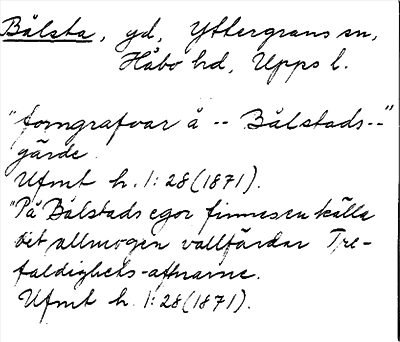 Bålsta, gd, Yttergrans sn,
Håbo hd, Upps l.
"forngrafvar å -- Bålstads--"
gärde.
Ufmt h. 1:28 (1871).
"På Bålstads egor finnes en källa
dit allmogen vallfärdar Tre-
faldighets-aftnarne.
Ufmt h. 1:28 (1871).